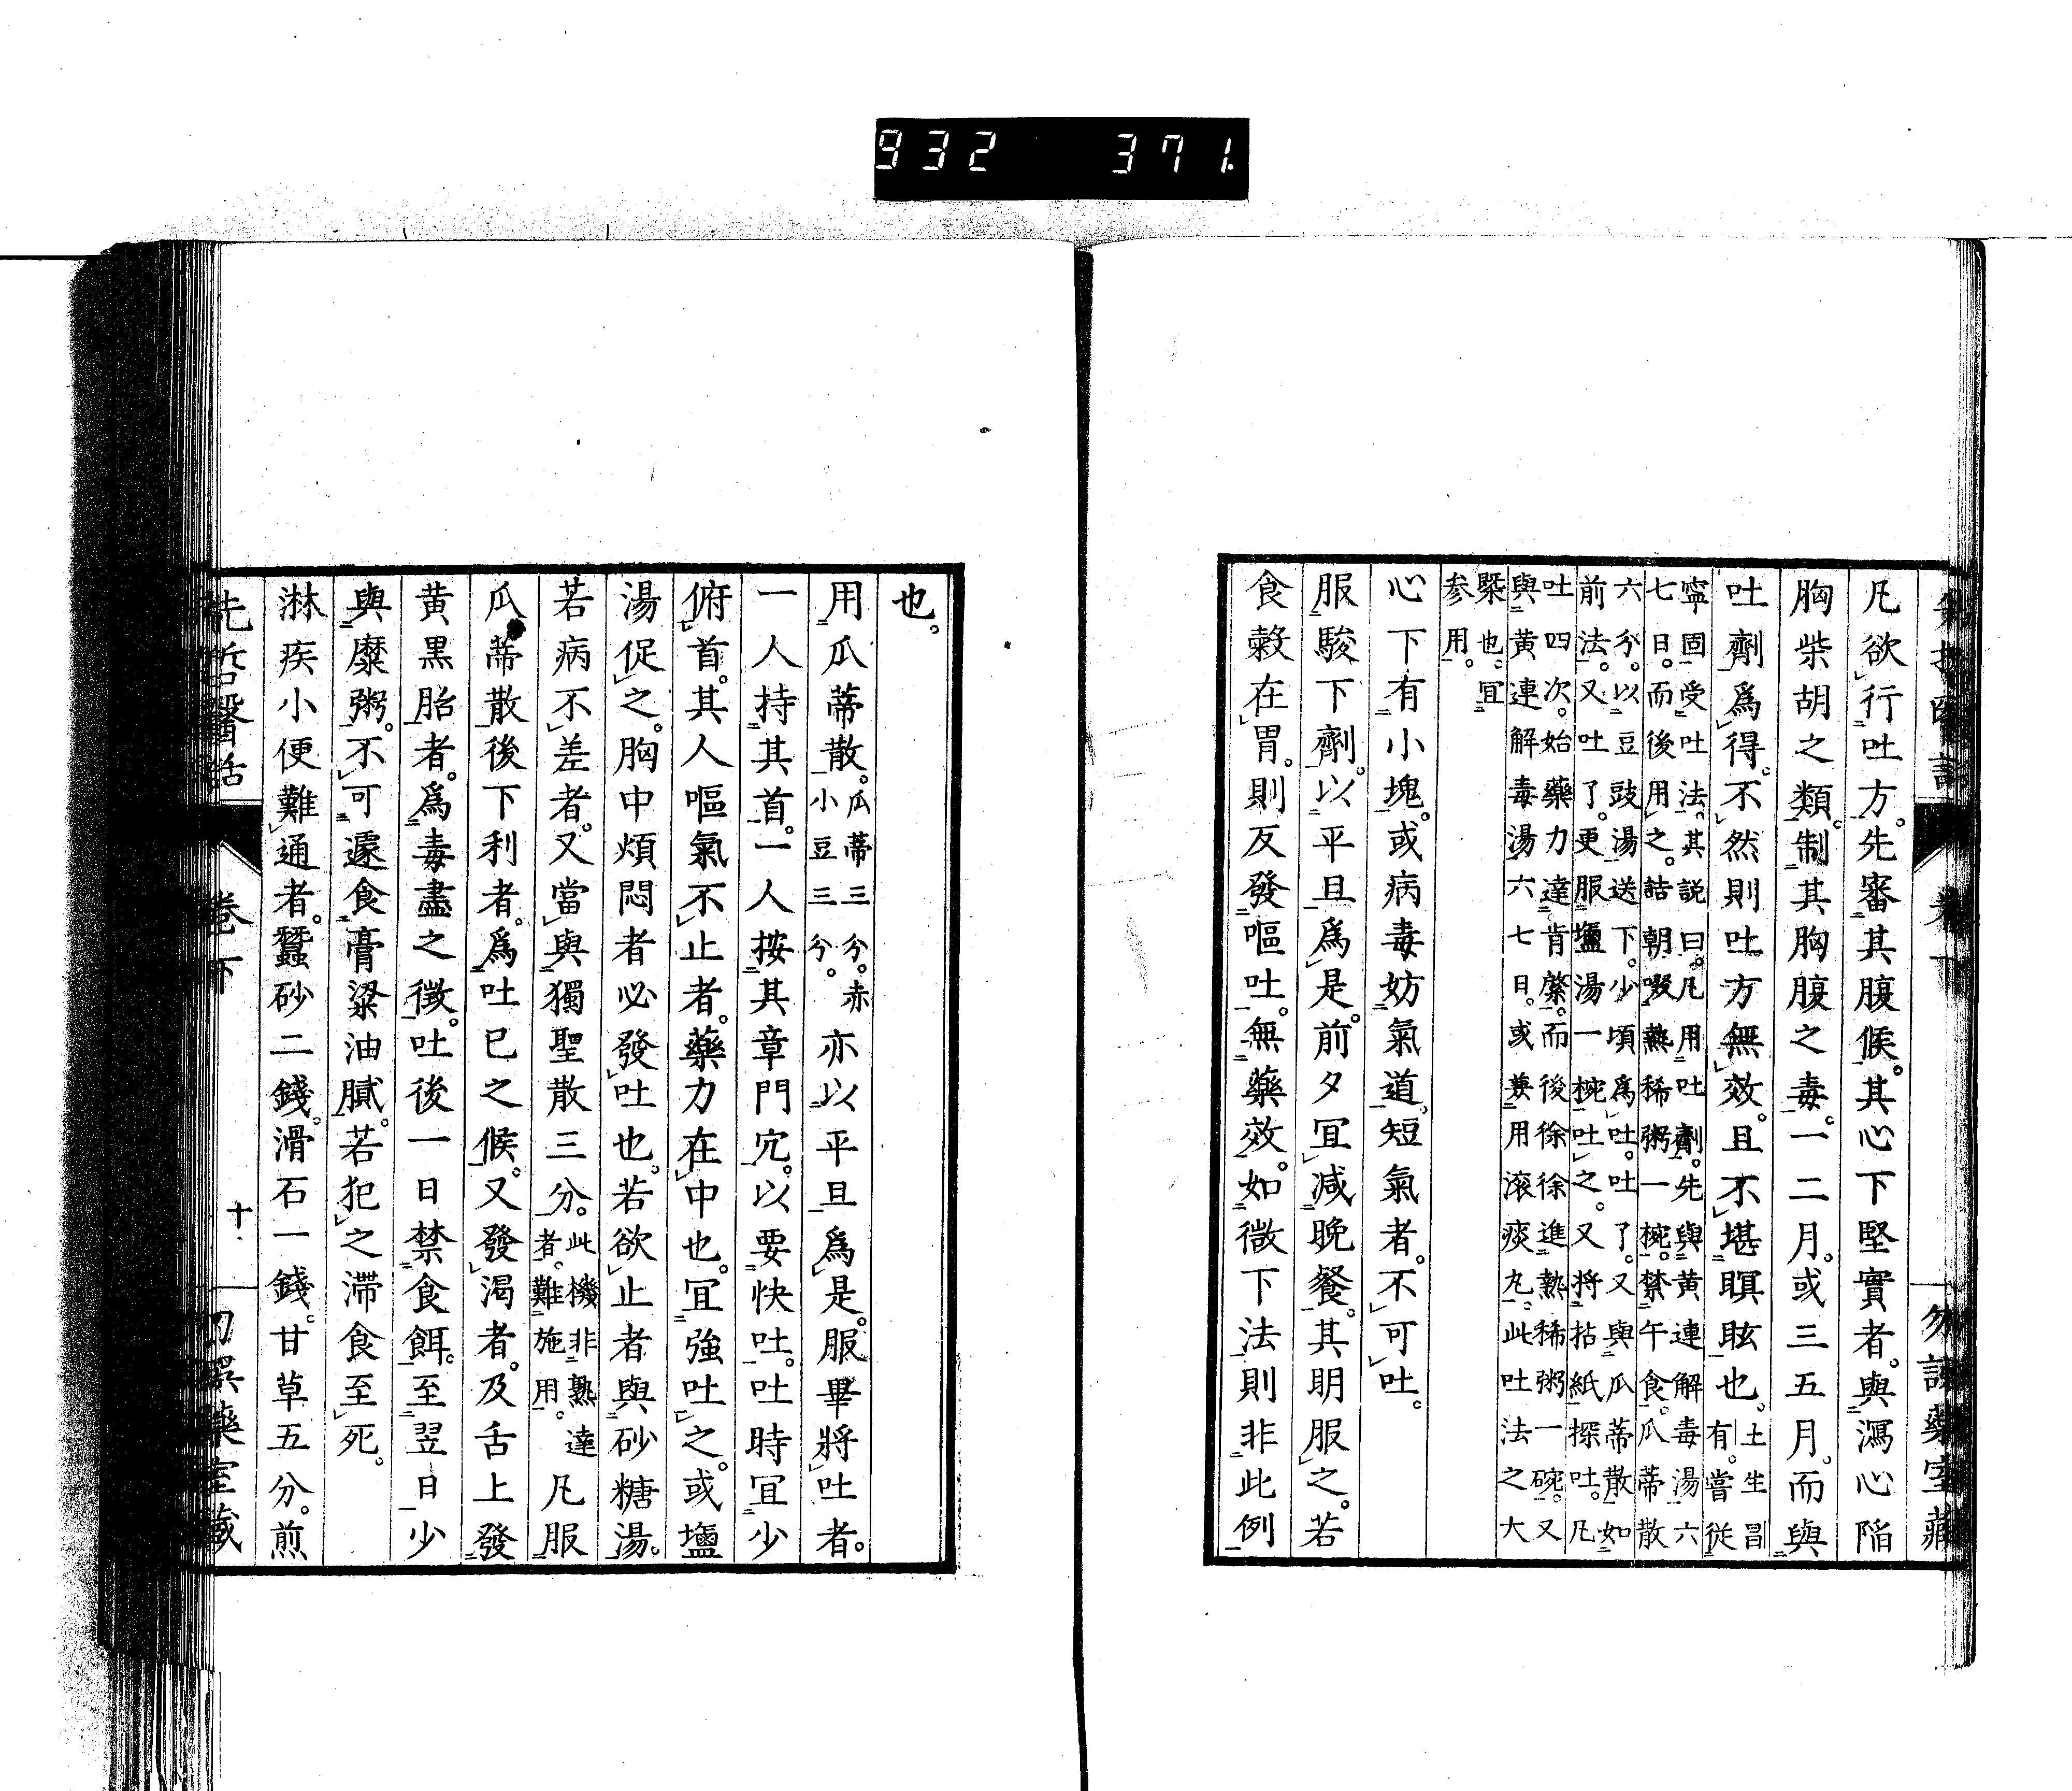 932 371
先哲醫話 卷下 勿誤藥室藏
凡欲行吐方。先審其腹候。其心下堅實者。與瀉心陷
胸柴胡之類。制其胸腹之毒。一二月。或三五月。而與
吐劑爲得。不然則吐方無效。且不堪瞑眩也。土生昌
有。嘗從
寧固受吐法。其説曰。凡用吐劑。先與黃連解毒湯六
七日。而後用之。詰朝啜熱稀粥一椀。禁午食。瓜蒂散
六分。以豆豉湯送下。少頃爲吐。吐了。又與瓜蒂散如
前法。又吐了。更服鹽湯一椀吐之。又將拈紙探吐。凡
吐四次。始藥力達肯綮。而後徐徐進熱稀粥一碗。又
與黃連解毒湯六七日。或兼用滚痰丸。此吐法之大
槩也。宜
参用。
心下有小塊。或病毒妨氣道。短氣者。不可吐。
服駿下劑。以平旦爲是。前夕冝減晩餐。其明服之。若
食糓在胃。則反發嘔吐。無藥效。如微下法則非此例
也。
用瓜蒂散。瓜蒂三分。赤
小豆三分。亦以平旦爲是。服畢將吐者。
一人持其首。一人按其章門穴。以要快吐。吐時冝少
俯首。其人嘔氣不止者。藥力在中也。冝強吐之。或鹽
湯促之。胸中煩悶者必發吐也。若欲止者與砂糖湯。
若病不差者。又當與獨聖散三分。此機非熟達
者。難施用。凡服
瓜蒂散後下利者。爲吐已之候。又發渴者。及舌上發
黃黒胎者。爲毒盡之徴。吐後一日禁食餌。至翌日少
與糜粥。不可遽食膏粱油膩。若犯之滯食至死。
淋疾小便難通者。蠶砂二錢。滑石一錢。甘草五分。煎
先哲醫話 卷下 十 勿誤藥室藏